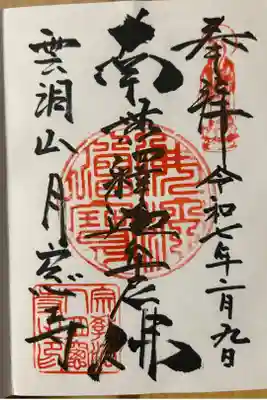 奉拝
令和七年二月九日
南無釋迦牟尼佛
佛法僧寶
雲洞山
月窓寺